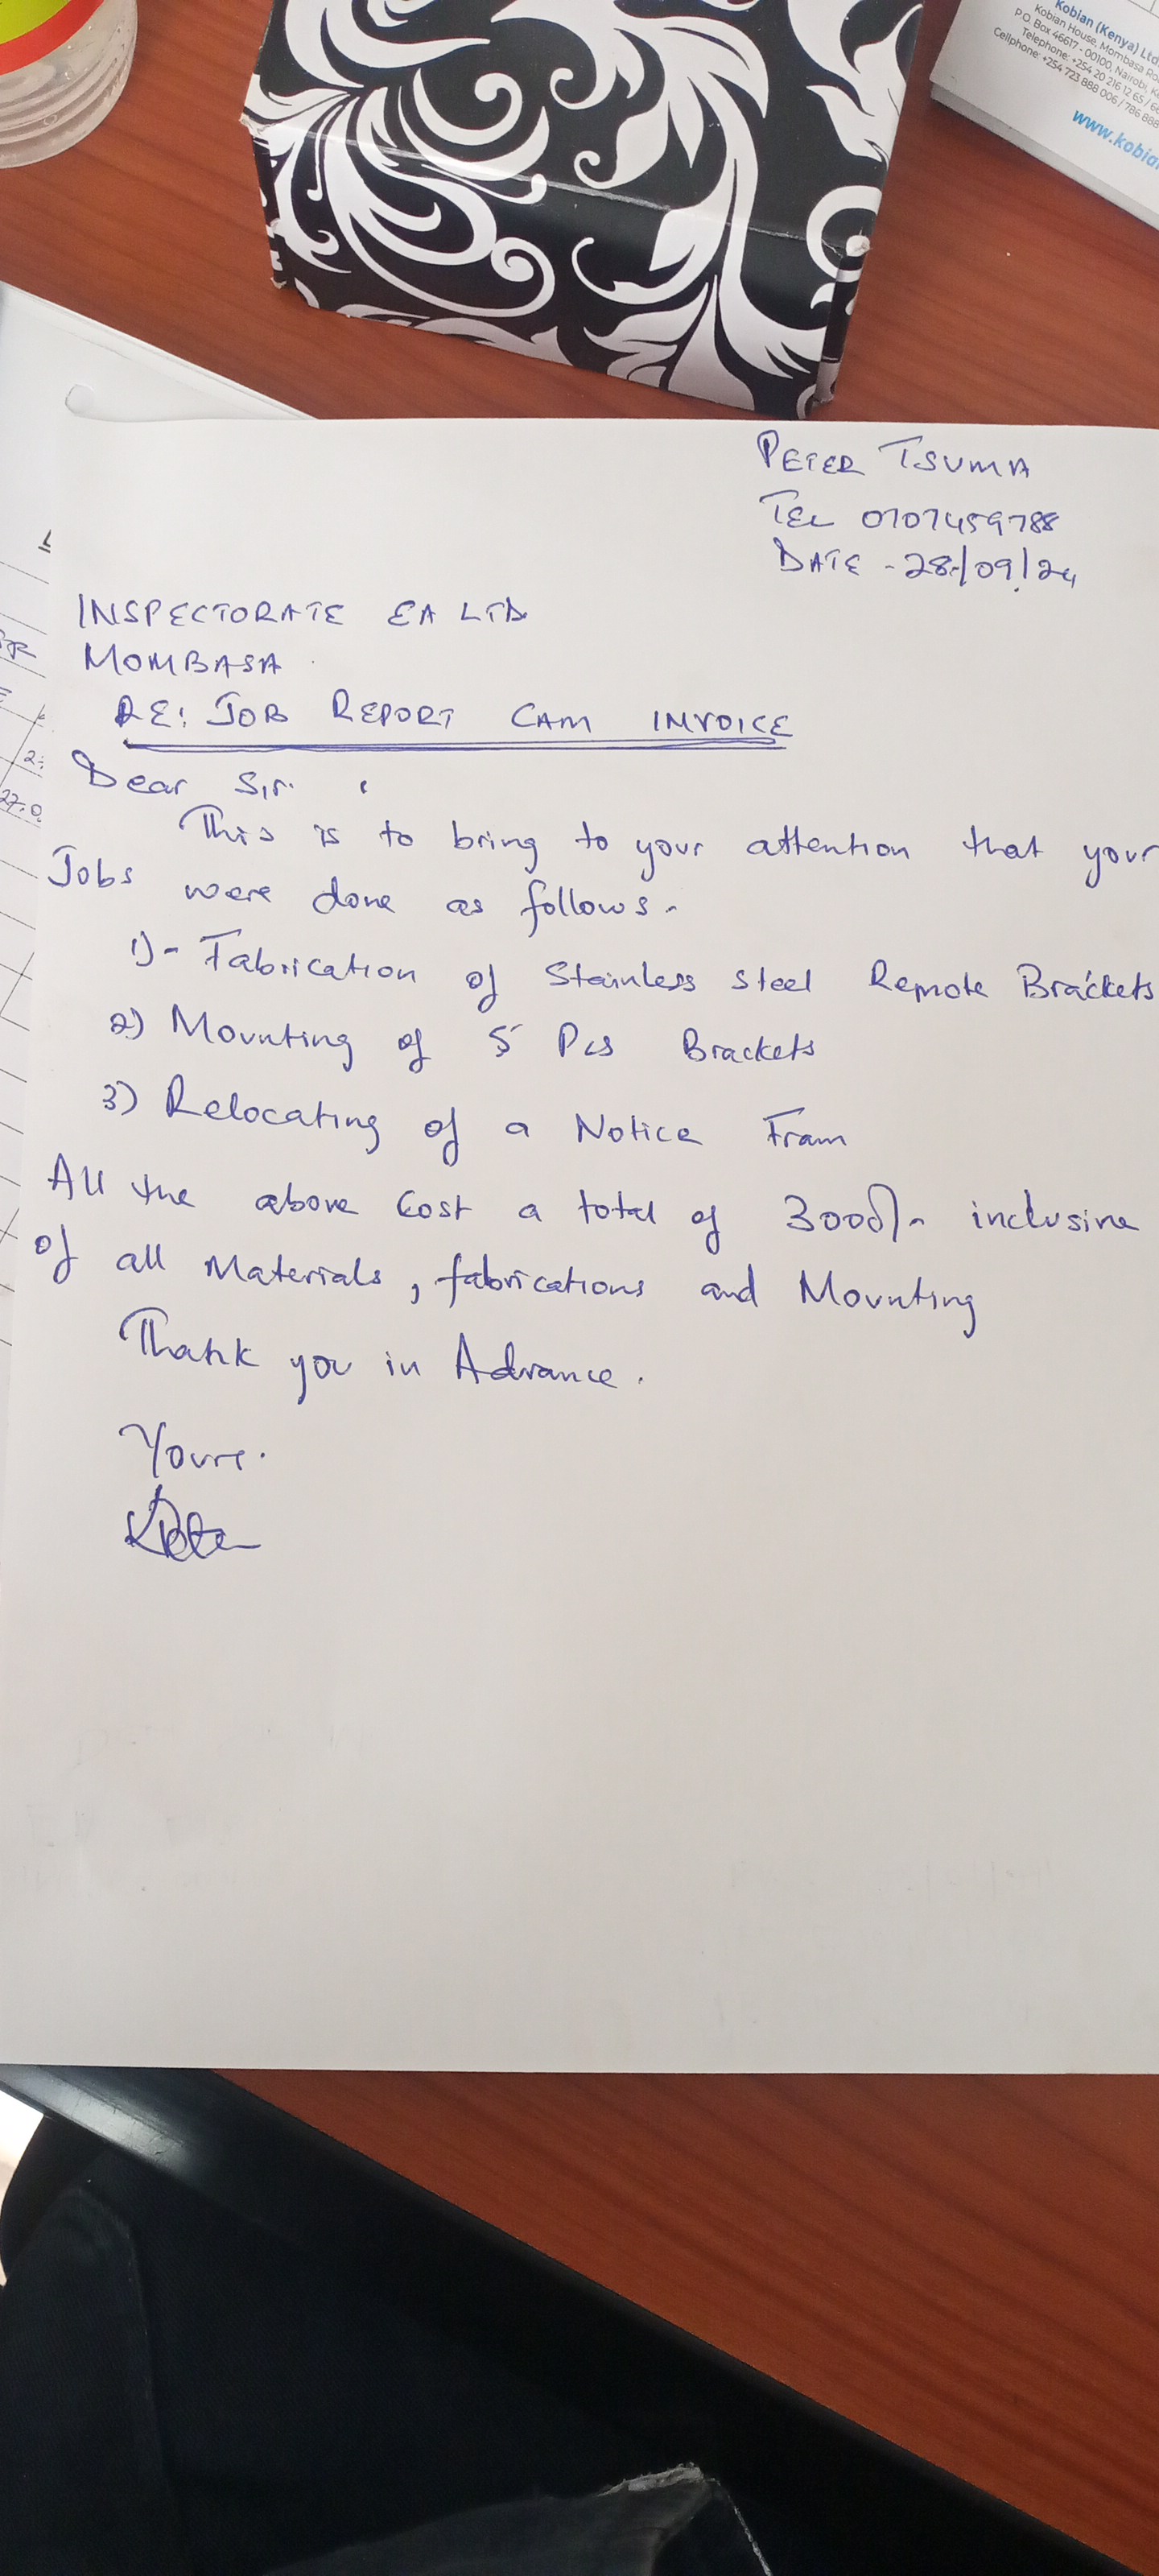 Kobian (Kenya) Ltd.
Kobian House, Mombasa Ro
P.O. Box 46617 - 00100, Nairobi, Ke
Telephone: +254 20 216 12 65 / 66
Cellphone: +254 723 888 006 / 786 888
www.kobian
PETER TSUMA
TEL 0707459788
DATE - 28/09/24
INSPECTORATE EA LTD
MOMBASA
RE: JOB REPORT CAM INVOICE
Dear Sir.
This is to bring to your attention that your
Jobs were done as follows-
1)- Fabrication of Stainless Steel Remote Brackets
2) Mounting of 5 Pcs Brackets
3) Relocating of a Notice Fram
All the above Cost a total of 3000/- inclusive
of all Materials, fabrications and Mounting
Thank you in Advance.
Yours.